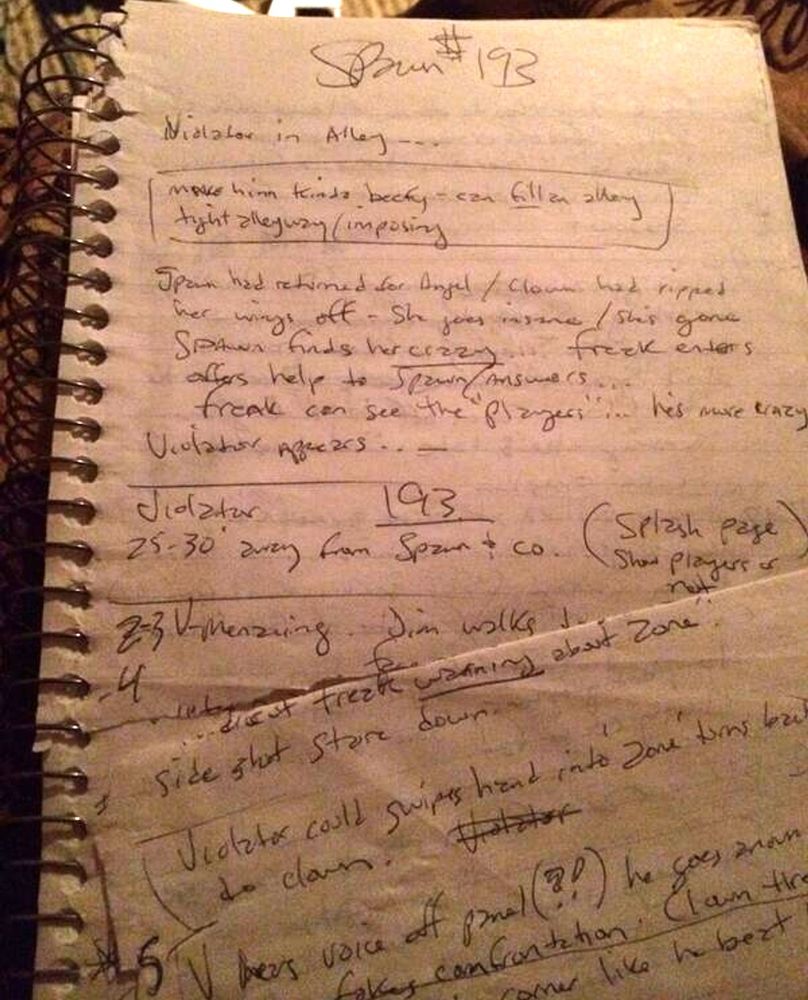 Spawn #193
Violator in Alley ---
make him kinda beefy - can fill an alley
tight alleyway/imposing
Spawn had returned for Angel / Clown had ripped
her wings off - She goes insane / she's gone
Spawn finds her crazy... freak enters
offers help to Spawn/answers...
freak can see the "players"... he's more crazy
Violator appears... —
193
Violator
25-30' away from Spawn & co. (Splash page
show players or
not
2-3 V-menacing. Jim walks
-4
... freak warning about 'Zone'.
side shot stare down.
Violator could swipes hand into 'Zone' turns back
to clown. Violator
*5 V hears voice off panel (?!) he goes
confrontation. Clown
corner like he beat